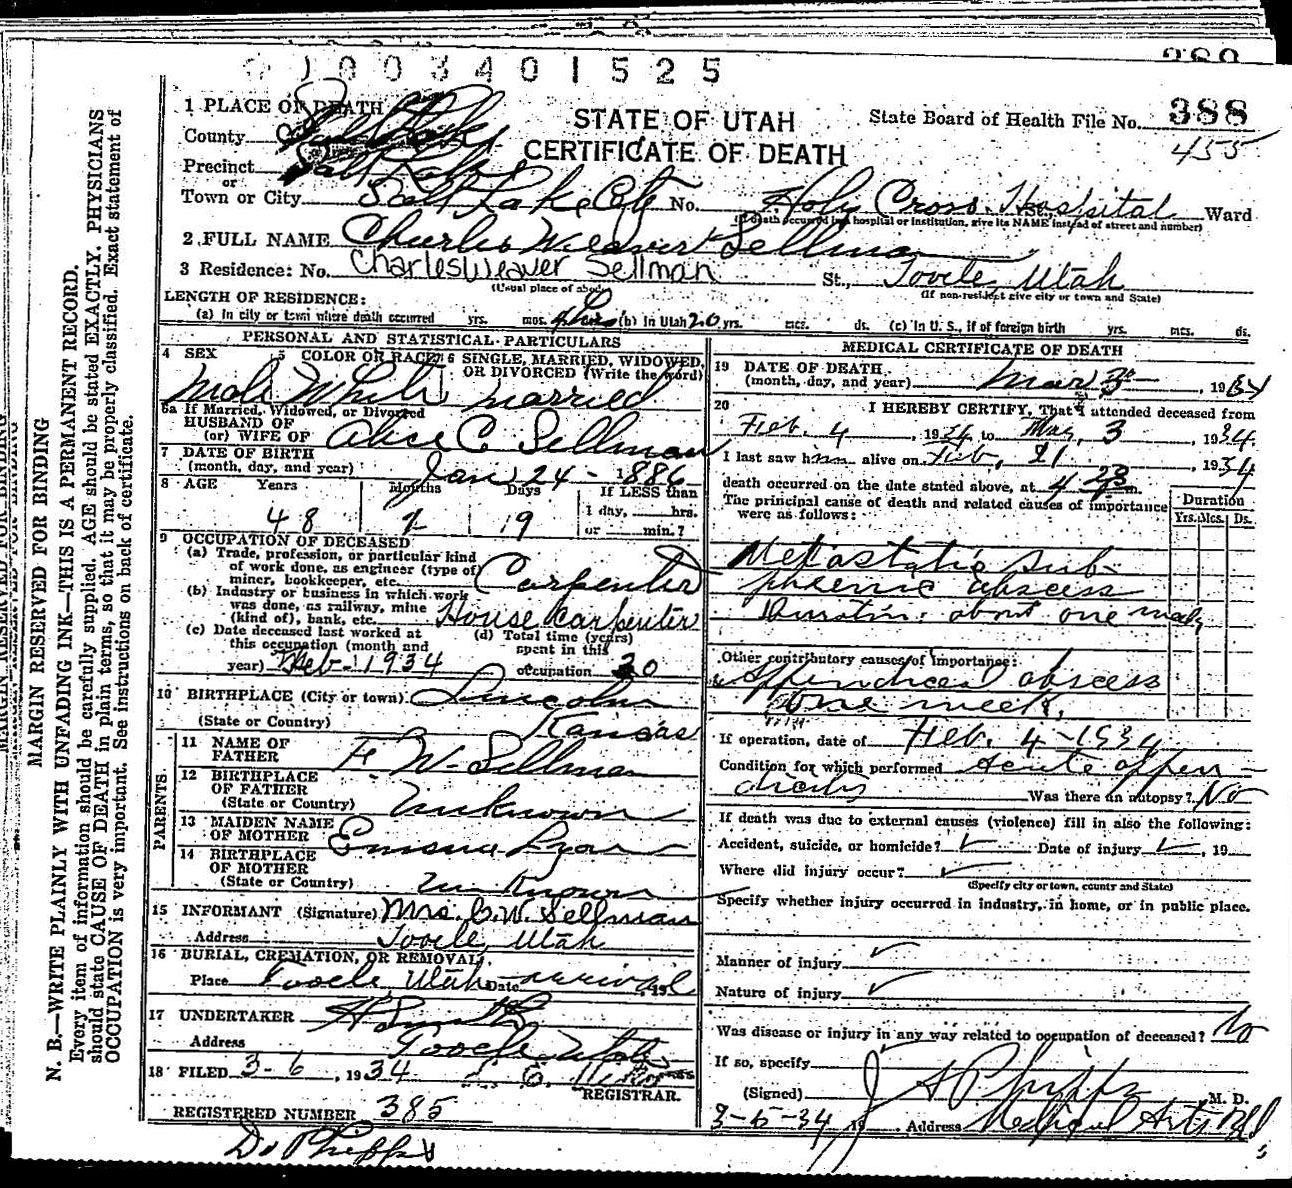 1003401525
1 PLACE OF DEATH
STATE OF UTAH
CERTIFICATE OF DEATH
State Board of Health File No. 388
455
County Salt Lake
Precinct Salt Lake
or
Town or City Salt Lake City No. Holy Cross Hospital St., Ward
(If death occurred in a hospital or institution, give its NAME instead of street and number)
2 FULL NAME Charles Weaver Sellman
3 Residence: No. Charles Weaver Sellman St., Tooele, Utah
(Usual place of abode) (If non-resident give city or town and State)
LENGTH OF RESIDENCE:
(a) In city or town where death occurred yrs. mos. (b) In Utah 20 yrs. mos. ds. (c) In U. S., if of foreign birth yrs. mos. ds.
PERSONAL AND STATISTICAL PARTICULARS
4 SEX 5 COLOR OR RACE 6 SINGLE, MARRIED, WIDOWED, OR DIVORCED (Write the word)
Male White Married
6a If Married, Widowed, or Divorced
HUSBAND OF
(or) WIFE OF Alice C. Sellman
7 DATE OF BIRTH
(month, day, and year) Jan 24 - 1886
8 AGE Years Months Days If LESS than
1 day, hrs.
48 19 or min.?
9 OCCUPATION OF DECEASED
(a) Trade, profession, or particular kind
of work done, as engineer (type of)
miner, bookkeeper, etc. Carpenter
(b) Industry or business in which work
was done, as railway, mine
(kind of), bank, etc. House Carpenter
(c) Date deceased last worked at
this occupation (month and
year) Feb. 1934
(d) Total time (years)
spent in this
occupation 30
10 BIRTHPLACE (City or town) Lincoln
(State or Country) Kansas
PARENTS.
11 NAME OF
FATHER F. W. Sellman
12 BIRTHPLACE
OF FATHER
(State or Country) Unknown
13 MAIDEN NAME
OF MOTHER
14 BIRTHPLACE
OF MOTHER
(State or Country) Unknown
15 INFORMANT (Signature) Mrs. C. W. Sellman
Address Tooele, Utah
16 BURIAL, CREMATION, OR REMOVAL,
Place Tooele, Utah Date , 19
17 UNDERTAKER
Address Tooele Utah
18 FILED 3-6, 1934
REGISTRAR.
REGISTERED NUMBER 385
Dr Phipps
MEDICAL CERTIFICATE OF DEATH
19 DATE OF DEATH
(month, day, and year) Mar 3 1934
20 I HEREBY CERTIFY, That I attended deceased from
Feb. 4, 1934 to Mar. 3, 1934.
I last saw him alive on Feb. 21, 1934
death occurred on the date stated above, at 4 m.
The principal cause of death and related causes of importance
were as follows:
Duration
Yrs. Mcs. Ds.
Metastatic sub-
phrenic abscess
Duration: about one
Other contributory causes of importance:
Appendiceal abscess
One week.
If operation, date of Feb. 4-1934
Condition for which performed Acute appen-
dicitis Was there an autopsy? No
If death was due to external causes (violence) fill in also the following:
Accident, suicide, or homicide? Date of injury , 19
Where did injury occur?
(Specify city or town, county and State)
Specify whether injury occurred in industry, in home, or in public place.
Manner of injury
Nature of injury
Was disease or injury in any way related to occupation of deceased? No
If so, specify
(Signed) Phipps M. D.
3-5-34 19 Address Medical Arts Bld
MARGIN RESERVED FOR BINDING
N. B.—WRITE PLAINLY WITH UNFADING INK—THIS IS A PERMANENT RECORD.
Every item of information should be carefully supplied. AGE should be stated EXACTLY. PHYSICIANS
should state CAUSE OF DEATH in plain terms, so that it may be properly classified. Exact statement of
OCCUPATION is very important. See instructions on back of certificate.